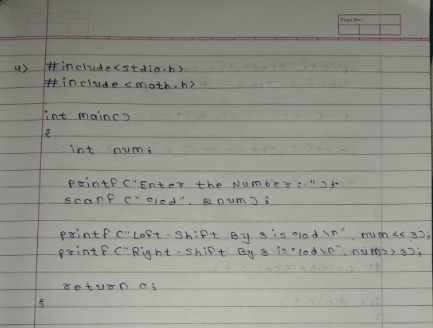 Page No.
4> #include<stdio.h>
#include <math.h>
int main()
{
int num;
printf ("Enter the Number:- ");
scanf ("%d", &num);
printf ("Left - Shift By 3 is %d \n", num << 3);
printf ("Right - Shift By 3 is %d \n", num >> 3);
return 0;
}